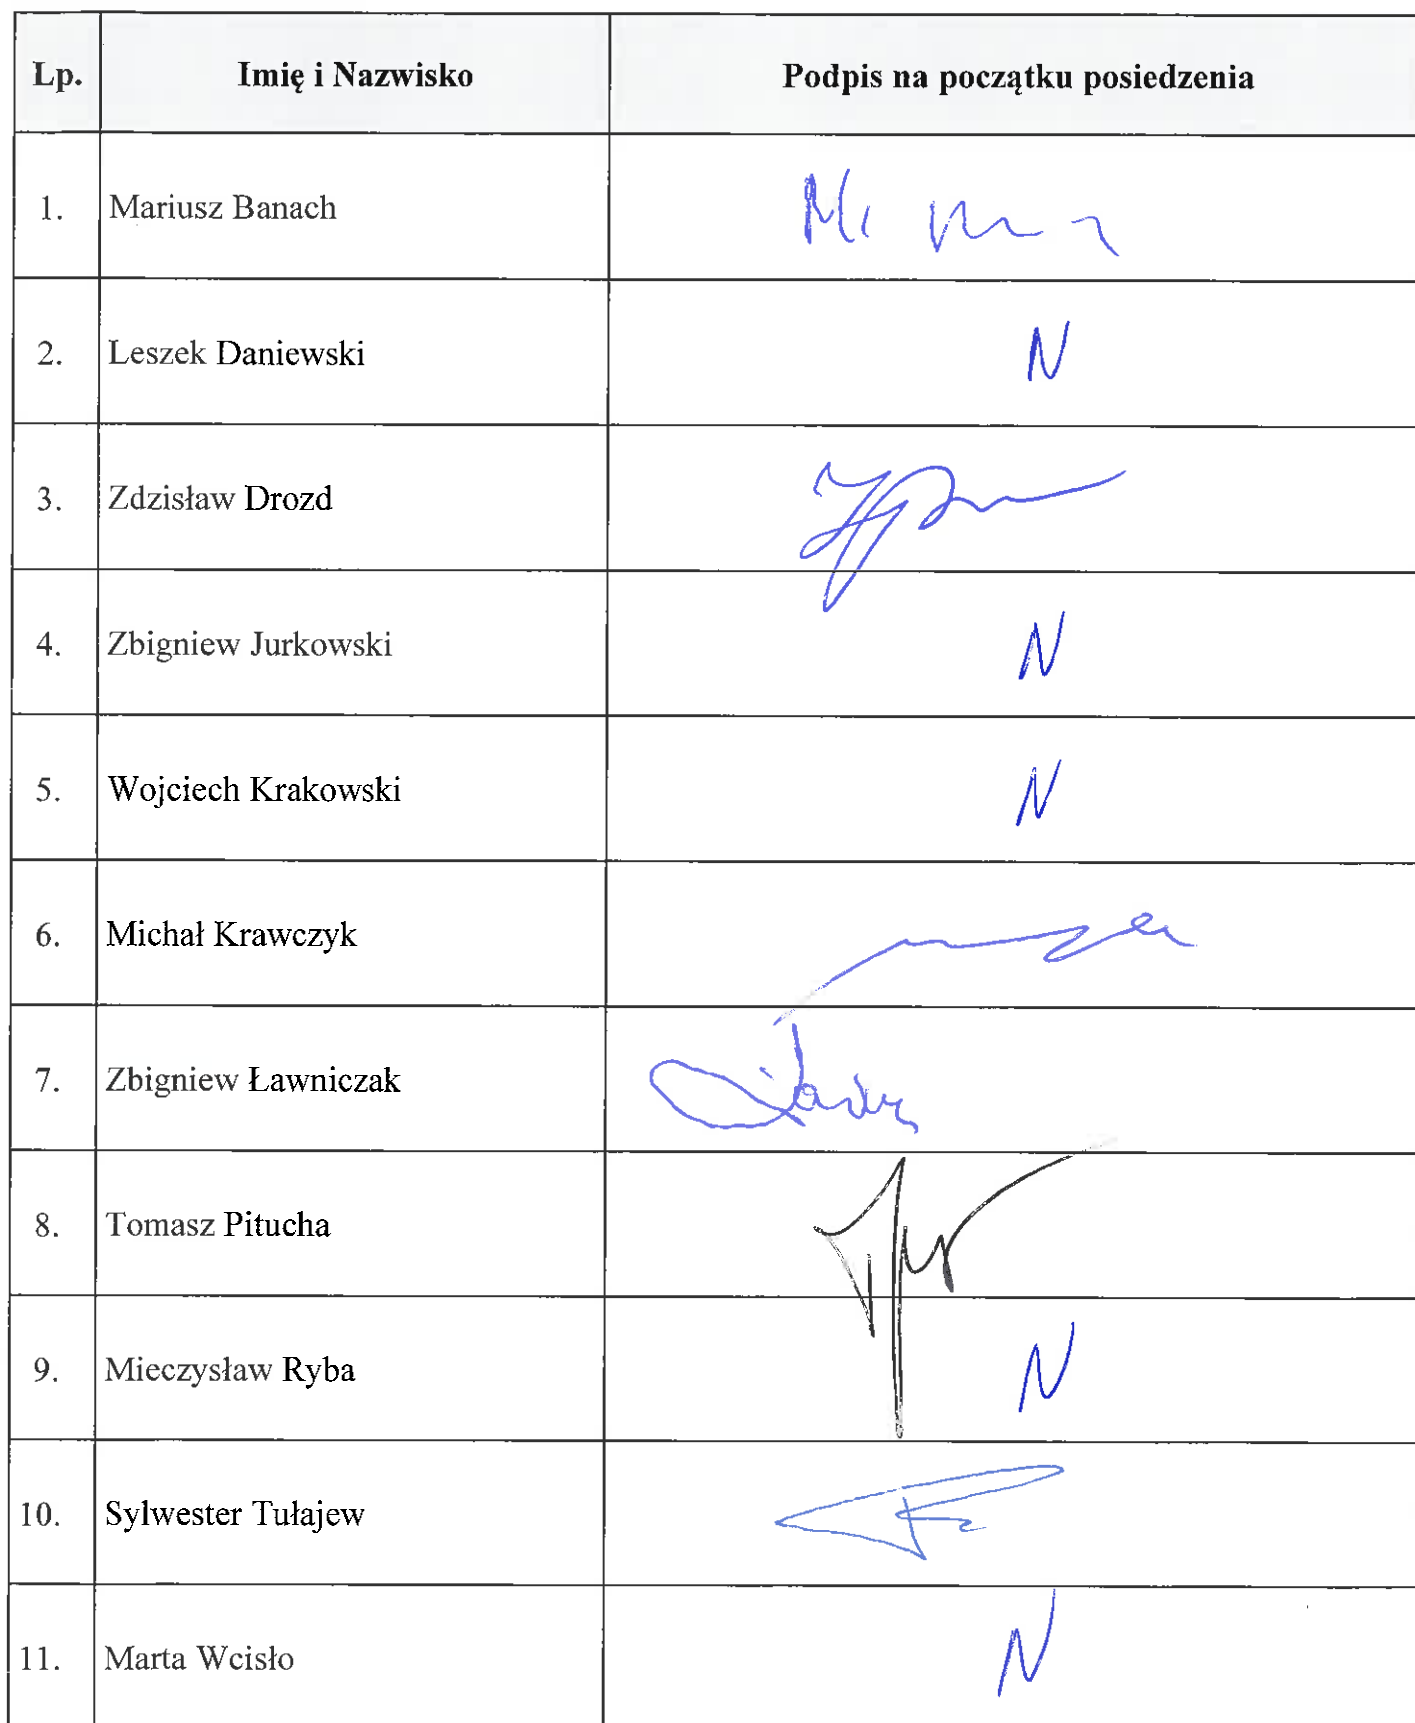 Lp. Imię i Nazwisko Podpis na początku posiedzenia
1. Mariusz Banach
2. Leszek Daniewski N
3. Zdzisław Drozd
4. Zbigniew Jurkowski N
5. Wojciech Krakowski N
6. Michał Krawczyk
7. Zbigniew Ławniczak
8. Tomasz Pitucha
9. Mieczysław Ryba N
10. Sylwester Tułajew
11. Marta Wcisło N